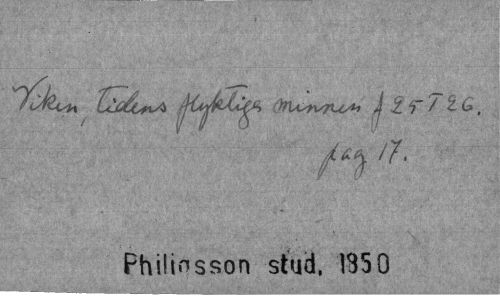 Viken, tidens flyktiga minnen f 25 T 26.
pag 17.
Philipsson stud, 1850